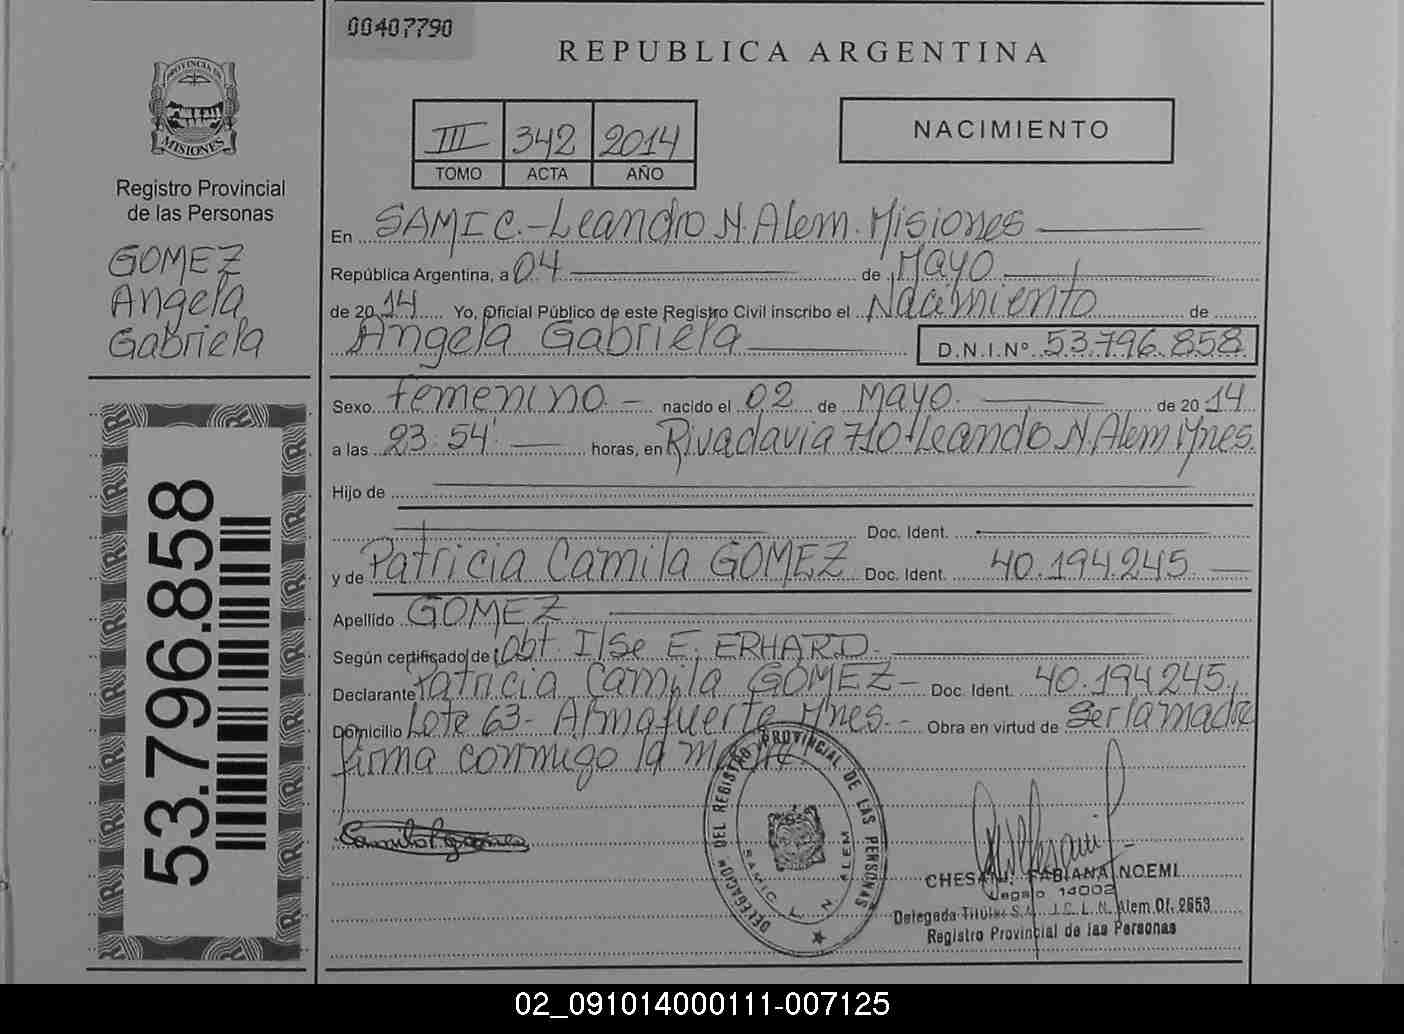 00407790
REPUBLICA ARGENTINA
PROVINCIA DE
MISIONES
Registro Provincial
de las Personas
GOMEZ
Angela
Gabriela
53.796.858
III 342 2014
TOMO ACTA AÑO
NACIMIENTO
En SAMIC.-Leandro N. Alem. Misiones
República Argentina, a 04 de Mayo
de 2014 Yo, Oficial Público de este Registro Civil inscribo el Nacimiento de
Angela Gabriela D.N.I.Nº 53.796.858
Sexo femenino - nacido el 02 de Mayo. de 2014
a las 23:54' horas, en Rivadavia 710-Leandro N. Alem Mnes.
Hijo de
Doc. Ident.
y de Patricia Camila GOMEZ Doc. Ident. 40.194.245
Apellido GOMEZ
Según certificado de Obt. Ilse E. ERHARD
Declarante Patricia Camila GOMEZ - Doc. Ident. 40.194.245.
Domicilio Lote 63- Almafuerte Mnes.- Obra en virtud de Ser la madre
firma conmigo la madre
DELEGACION DEL REGISTRO PROVINCIAL DE LAS PERSONAS
SAMIC L. N. ALEM
FABIANA NOEMI
Legajo 14002
Delegada Titular L. N. Alem Of. 2653
Registro Provincial de las Personas
02_091014000111-007125